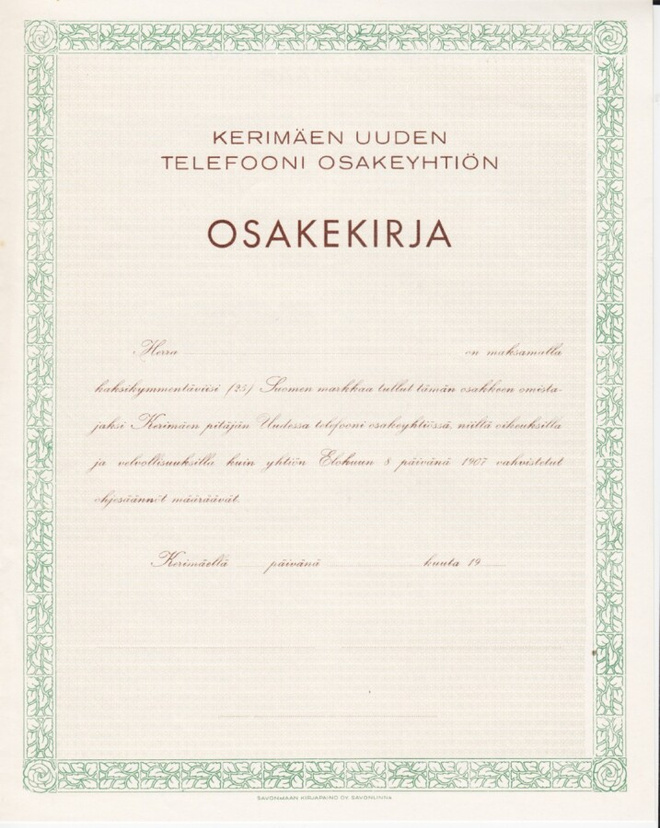 KERIMÄEN UUDEN
TELEFOONI OSAKEYHTIÖN
OSAKEKIRJA
Herra on maksamalla
kaksikymmentäviisi (25) Suomen markkaa tullut tämän osakkeen omista-
jaksi Kerimäen pitäjän Uudessa telefooni osakeyhtiössä, niillä oikeuksilla
ja velvollisuuksilla kuin yhtiön Elokuun 8 päivänä 1907 vahvistetut
ohjesäännöt määräävät.
Kerimäellä päivänä kuuta 19
SAVONMAAN KIRJAPAINO OY SAVONLINNA